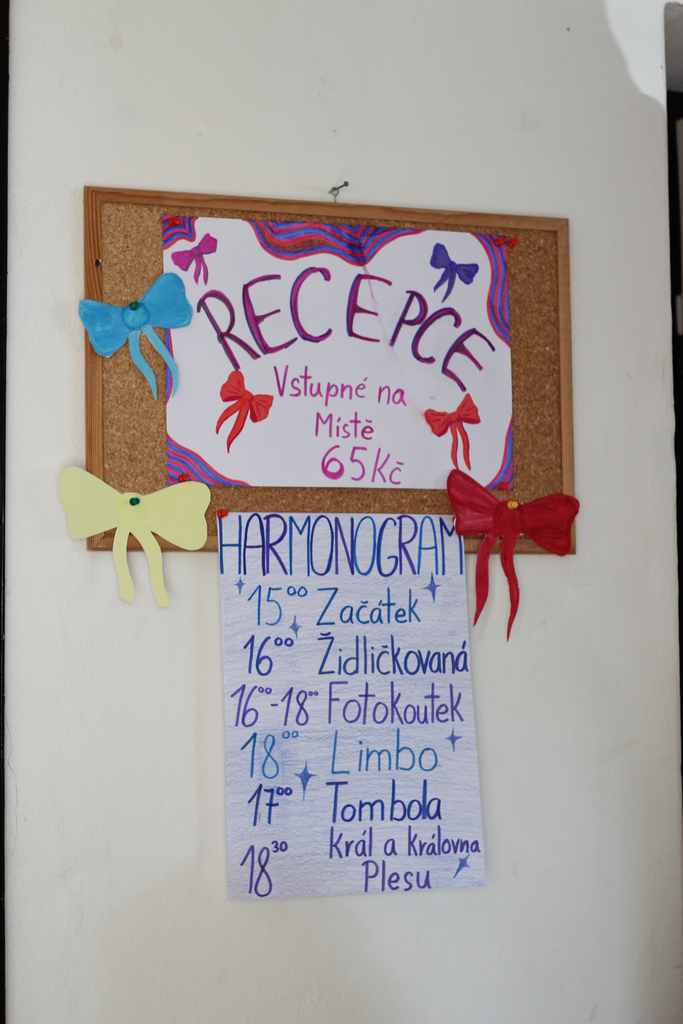 RECEPCE
Vstupné na
Místě
65Kč
HARMONOGRAM
15⁰⁰ Začátek
16⁰⁰ Židličkovaná
16⁰⁰-18⁰⁰ Fotokoutek
18⁰⁰ Limbo
17⁰⁰ Tombola
18³⁰ Král a Královna
Plesu